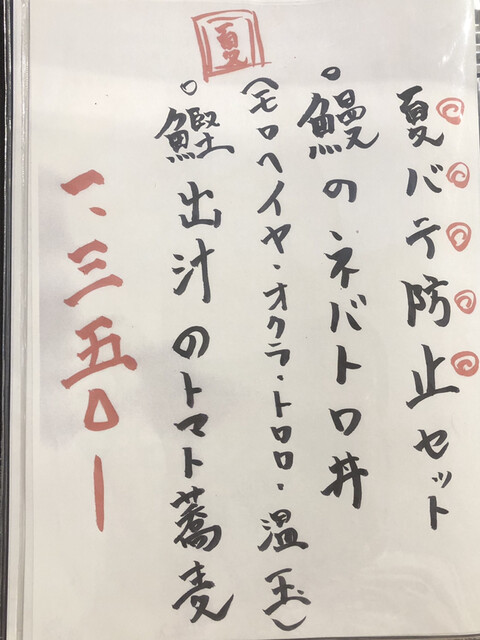 夏バテ防止セット
鰻のネバトロ丼
(モロヘイヤ・オクラ・トロロ・温玉)
鰹出汁のトマト蕎麦
夏
一、三五〇ー